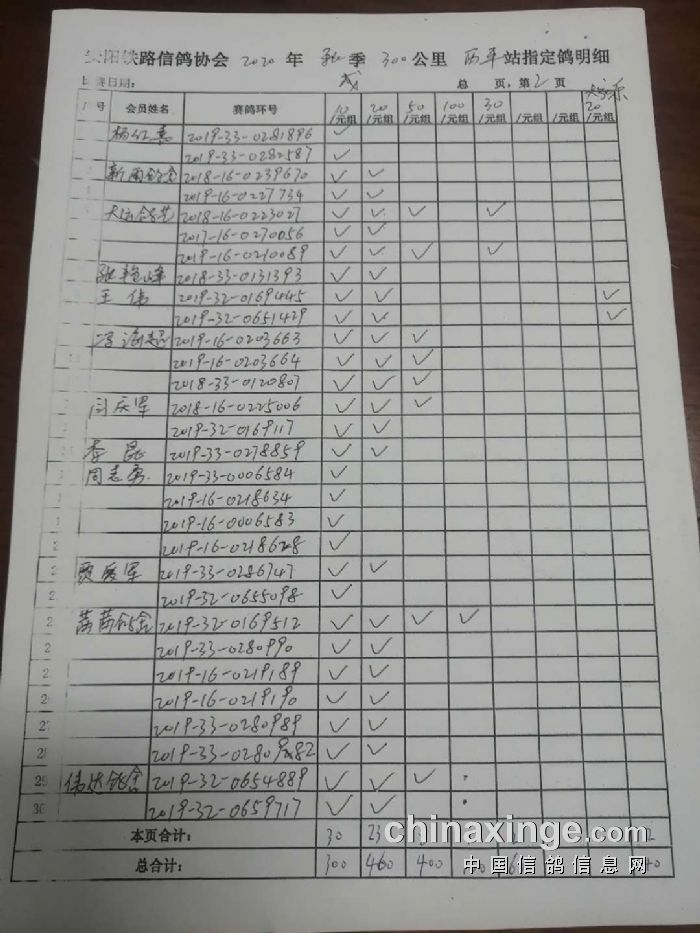 阳铁路信鸽协会 2020 年 秋 季 300 公里 站指定鸽明细
赛日期: 成 总 页, 第2页
序号 会员姓名 赛鸽环号 10/元组 20/元组 50/元组 100/元组 30/元组 /元组 /元组 20/元组
2019-33-0281896 ✓
2019-33-0282587 ✓
2018-16-0239670 ✓ ✓
2019-16-0227734 ✓ ✓
2018-16-0223027 ✓ ✓ ✓ ✓
2017-16-0270056 ✓ ✓
2019-16-0210089 ✓ ✓ ✓ ✓
张艳峰 2018-33-0131393 ✓ ✓
王伟 2019-32-0169445 ✓ ✓ ✓
2019-32-0651429 ✓ ✓ ✓
2019-16-0203663 ✓ ✓ ✓
2019-16-0203664 ✓ ✓ ✓
2018-33-0120807 ✓ ✓ ✓
闫庆军 2018-16-0225006 ✓ ✓ ✓
2019-32-0169117 ✓ ✓
李昆 2019-33-0278859 ✓ ✓
周志勇 2019-33-0006584 ✓
2019-16-0218634 ✓
2019-16-0006583 ✓
2019-16-0218628 ✓
贾爱军 2019-33-0286747 ✓ ✓
2019-32-0655098 ✓
茜茜鸽舍 2019-32-0169512 ✓ ✓ ✓ ✓
2019-33-0280990 ✓ ✓
2019-16-0219189 ✓ ✓
2019-16-0219190 ✓ ✓
2019-33-0280989 ✓ ✓
2019-33-0280982 ✓ ✓
29 伟达鸽舍 2019-32-0654889 ✓ ✓ ✓
30 2019-32-0659717 ✓ ✓
本页合计: 30 23
总合计: 300 460 400
chinaxinge.com
中国信鸽信息网